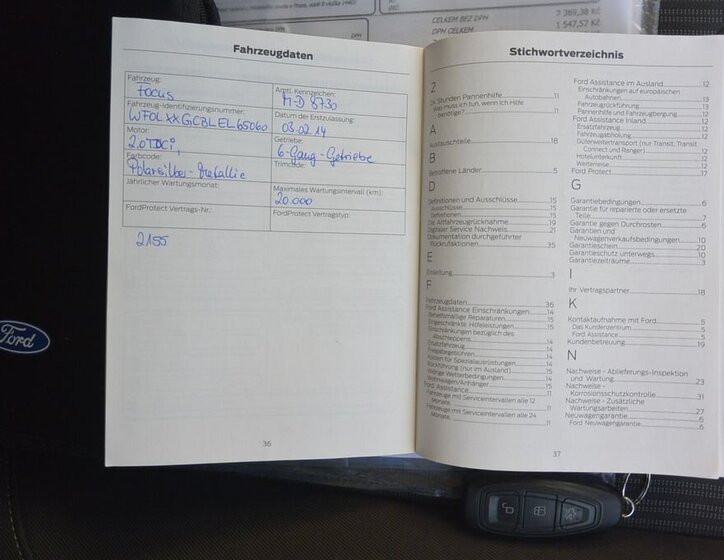 CELKEM BEZ DPH 7 369,38 Kč
DPH CELKEM 1 547,57 Kč
DPH
Fahrzeugdaten
Fahrzeug:
Focus
Amtl. Kennzeichen:
M-D 8730
Fahrzeug-Identifizierungsnummer:
WF0LXXGCBLEL65060
Datum der Erstzulassung:
03.02.14
Motor:
2.0TDCi,
Getriebe:
6-Gang-Getriebe
Farbcode:
Polarsilber-Metallic
Trimcode:
Jährlicher Wartungsmonat:
Maximales Wartungsintervall (km):
20.000
FordProtect Vertrags-Nr.:
FordProtect Vertragstyp:
2155
36
Ford
Stichwortverzeichnis
2
24 Stunden Pannenhilfe 11
Was muss ich tun, wenn ich Hilfe
benötige? 11
A
Austauschteile 18
B
Betroffene Länder 5
D
Definitionen und Ausschlüsse 15
Ausschlüsse 15
Definitionen 15
Die Altfahrzeugrücknahme 19
Digitaler Service Nachweis 21
Dokumentation durchgeführter
Rückrufaktionen 35
E
Einleitung 3
F
Fahrzeugdaten 36
Ford Assistance Einschränkungen 14
Behelfsmäßige Reparaturen 15
Eingeschränkte Hilfeleistungen 15
Einschränkungen bezüglich des
Abschleppens 14
Ersatzfahrzeug 14
Freigabegebühren 14
Kosten für Spezialausrüstungen 14
Rückführung (nur im Ausland) 15
Widrige Wetterbedingungen 14
Wohnwagen/Anhänger 15
Ford Assistance 11
Fahrzeuge mit Serviceintervallen alle 12
Monate 11
Fahrzeuge mit Serviceintervallen alle 24
Monate 11
Ford Assistance im Ausland 12
Einschränkungen auf europäischen
Autobahnen 13
Fahrzeugrückführung 13
Pannenhilfe und Fahrzeugbergung 12
Ford Assistance Inland 12
Ersatzfahrzeug 12
Fahrzeugabholung 12
Güterweitertransport (nur Transit, Transit
Connect und Ranger) 12
Hotelunterkunft 12
Weiterreise 12
Ford Protect 17
G
Garantiebedingungen 6
Garantie für reparierte oder ersetzte
Teile 7
Garantie gegen Durchrosten 6
Garantien und
Neuwagenverkaufsbedingungen 10
Garantieschein 20
Garantieschutz unterwegs 10
Garantiezeiträume 3
I
Ihr Vertragspartner 18
K
Kontaktaufnahme mit Ford 5
Das Kundenzentrum 5
Ford Assistance 5
Kundenbetreuung 19
N
Nachweise - Ablieferungs-Inspektion
und Wartung 23
Nachweise -
Korrosionsschutzkontrolle 31
Nachweise - Zusätzliche
Wartungsarbeiten 27
Neuwagengarantie 6
Ford Neuwagengarantie 6
37